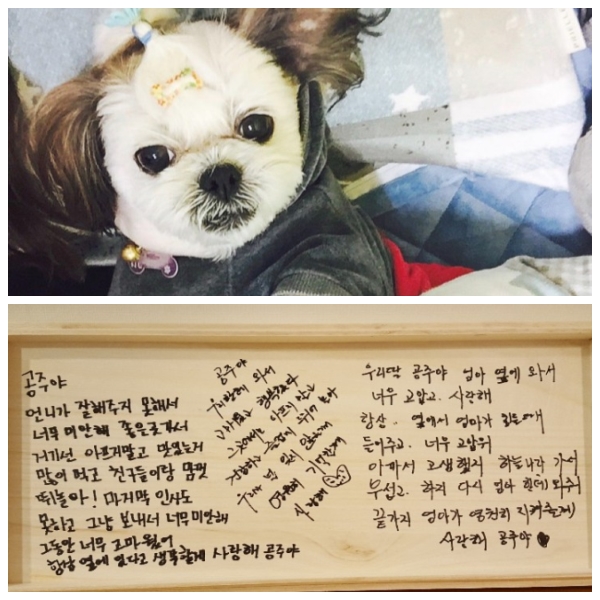 공주야
언니가 잘해주지 못해서
너무 미안해 좋은곳가서
거기선 아프지말고 맛있는거
많이 먹고 친구들이랑 맘껏
뛰놀아! 마지막 인사도
못하고 그냥 보내서 너무 미안해
그동안 너무 고마웠어
항상 옆에 있다고 생각할게 사랑해 공주야
공주야
우리한테 와서
행복했다
그곳에서는 아프지 말고
우리
영원히 기억할게
사랑해
우리딸 공주야 엄마 옆에 와서
너무 고맙고. 사랑해
항상. 옆에서 엄마가 힘들때
들어주고. 너무 고마워
아파서 고생했지 하늘나라 가서
무섭고. 하지 다시 엄마 한테 와줘
끝까지 엄마가 영원히 지켜줄게
사랑해 공주야